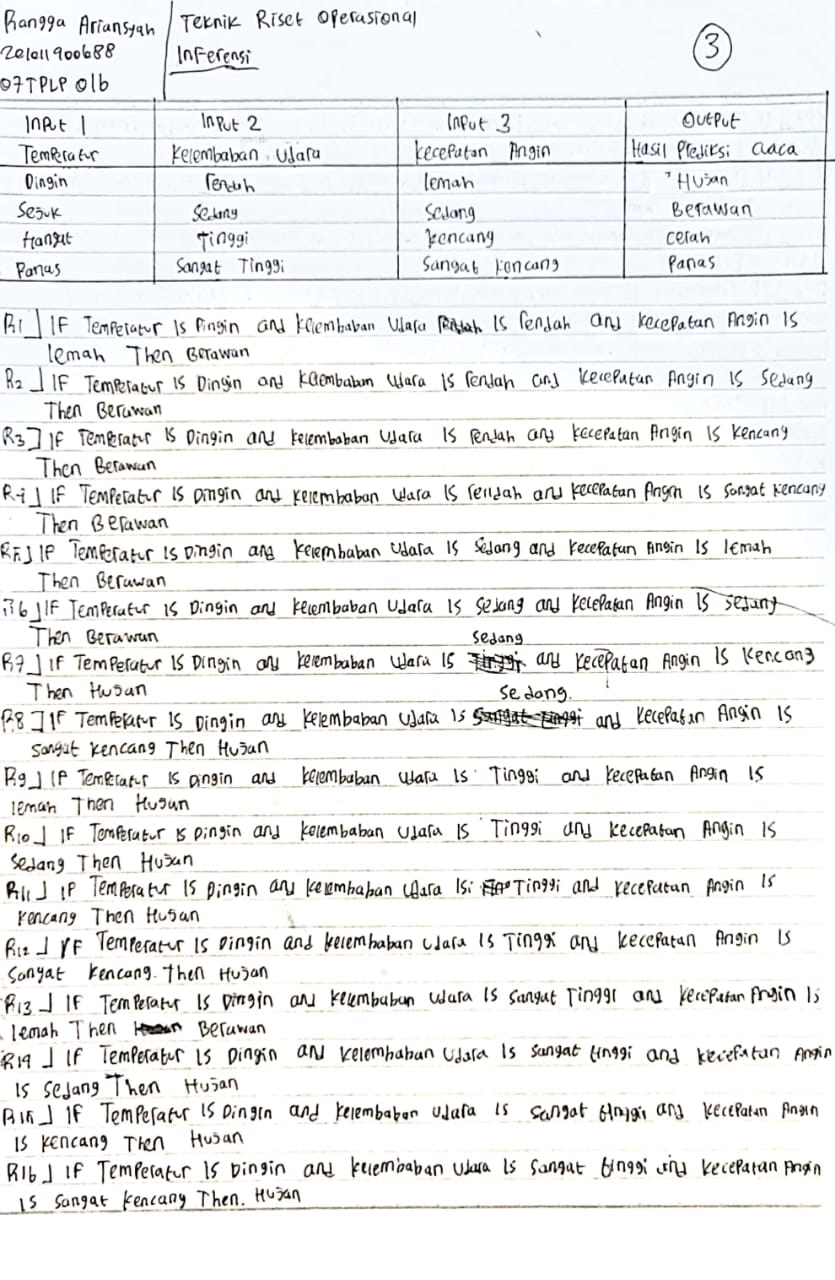 Rangga Ariansyah
201011900688
07TPLP 016
Teknik Riset Operasional
Inferensi
3
Input 1 Input 2 Input 3 Output
Temperatur Kelembaban Udara Kecepatan Angin Hasil Prediksi Cuaca
Dingin rendah lemah Hujan
Sejuk Sedang Sedang Berawan
Hangat Tinggi kencang cerah
Panas Sangat Tinggi Sangat Kencang Panas
R1] IF Temperatur Is Dingin and Kelembaban Udara Is Rendah and Kecepatan Angin Is
lemah Then Berawan
R2] IF Temperatur Is Dingin and Kelembabam Udara Is rendah and Kecepatan Angin Is Sedang
Then Berawan
R3] IF Temperatur Is Dingin and Kelembaban Udara Is rendah and Kecepatan Angin Is Kencang
Then Berawan
R4] IF Temperatur Is Dingin and Kelembaban Udara Is rendah and Kecepatan Angin Is Sangat Kencang
Then Berawan
R5] IF Temperatur Is Dingin and Kelembaban Udara Is Sedang and Kecepatan Angin Is lemah
Then Berawan
R6] IF Temperatur Is Dingin and Kelembaban Udara Is Sedang and Kecepatan Angin Is Sedang
Then Berawan
R7] IF Temperatur Is Dingin and Kelembaban Udara Is Sedang and Kecepatan Angin Is Kencang
Then Hujan
R8] IF Temperatur Is Dingin and Kelembaban Udara Is Sedang. and Kecepatan Angin Is
Sangat Kencang Then Hujan
R9] IF Temperatur Is Dingin and Kelembaban Udara Is Tinggi and Kecepatan Angin Is
lemah Then Hujan
R10] IF Temperatur Is Dingin and Kelembaban Udara Is Tinggi and Kecepatan Angin Is
Sedang Then Hujan
R11] IF Temperatur Is Dingin and Kelembaban Udara Is Tinggi and Kecepatan Angin Is
Kencang Then Hujan
R12] IF Temperatur Is Dingin and Kelembaban Udara Is Tinggi and Kecepatan Angin Is
Sangat Kencang. Then Hujan
R13] IF Temperatur Is Dingin and Kelembaban Udara Is Sangat Tinggi and Kecepatan Angin Is
lemah Then Berawan
R14] IF Temperatur Is Dingin and Kelembaban Udara Is Sangat tinggi and Kecepatan Angin
Is Sedang Then Hujan
R15] IF Temperatur Is Dingin and Kelembaban Udara Is Sangat tinggi and Kecepatan Angin
Is Kencang Then Hujan
R16] IF Temperatur Is Dingin and Kelembaban Udara Is Sangat tinggi and Kecepatan Angin
Is Sangat Kencang Then. Hujan